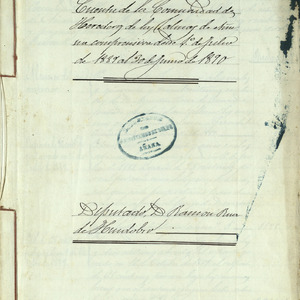 Cuenta de la Comunidad de
Herederos de las Salinas de Aña
na comprensiva desde 1º de Julio
de 1889 al 30 de Junio de 1890
AÑANA
Diputado, D. Ramon Ruiz
de Huidobro